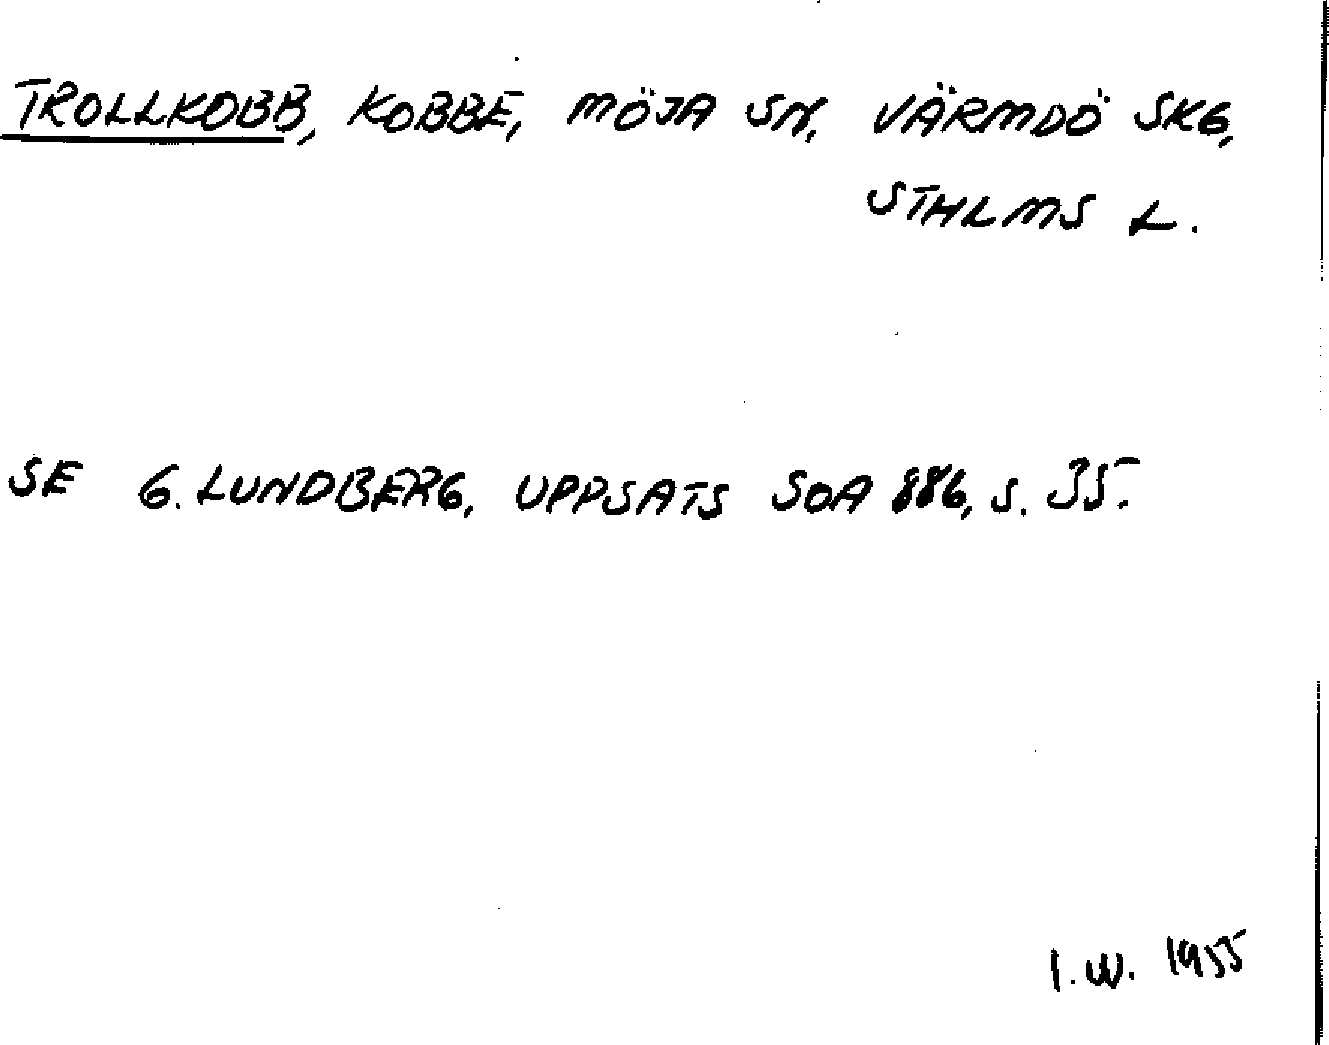 TROLLKOBB, KOBBE, MÖJA SN, VÄRMDÖ SKG,
STHLMS L.
SE G. LUNDBERG, UPPSATS SOA 886, S. 35.
I.W. 1955